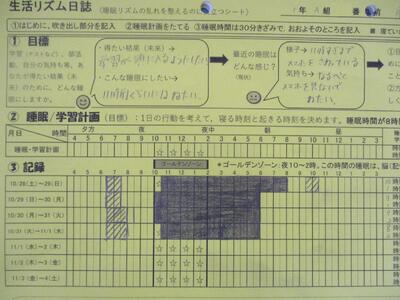 生活リズム日誌 (睡眠リズムの乱れを整えるのに役立つシート) 1年 A組 番 前
①はじめに、吹き出し部分を記入 ②睡眠計画をたてる ③睡眠時間は30分きざみで、おおよそのところを記入
① 目標
学習(テストなど)、部活動、自分の気持ち等、あなたが得たい結果(未来)のために、どんな睡眠にしますか。
・得たい結果(未来)→
・こんな睡眠にしたい→
11時前くらいにはねたい。
最近の睡眠はどんな感じ?
様子→11時すぎまでスマホをさわっている
気持ち→なるべくスマホを見ないでねたい。
② 睡眠/学習計画 (目標):1日の行動を考えて、寝る時刻と起きる時刻を決めます。睡眠時間が8時
夕方 夜 夜中 朝 昼
月日 時間 4 5 6 7 8 9 10 11 12 1 2 3 4 5 6 7 8 9 10 11 12 1 2 3
睡眠・学習計画 ☆ ☆ ☆ ☆
③ 記録 ゴールデンゾーン *ゴールデンゾーン:夜10~2時。この時間の睡眠は、脳(記
時間 4 5 6 7 8 9 10 11 12 1 2 3 4 5 6 7 8 9 10 11 12 1 2 3
10/28(土)~29(日)
10/29(日)~30(月)
10/30(月)~31(火)
10/31(火)~11/1(水)
11/1(水)~2(木) ☆ ☆ ☆ ☆
11/2(木)~3(金) ☆ ☆ ☆ ☆
11/3(金)~4(土) ☆ ☆ ☆ ☆